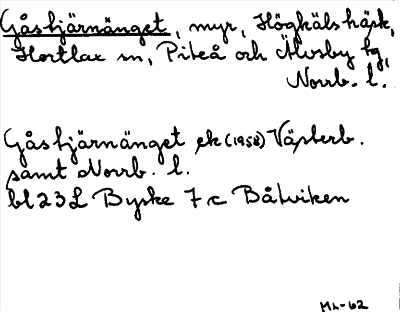 Gåstjärnänget, myr, Högkälshäsk,
Hortlax sn, Piteå och Älvsby tg,
Norrb. l.
Gåstjärnänget ek (1958) Västerb.
samt Norrb. l.
bl 23L Byske 7 c Båtviken
Mh-62